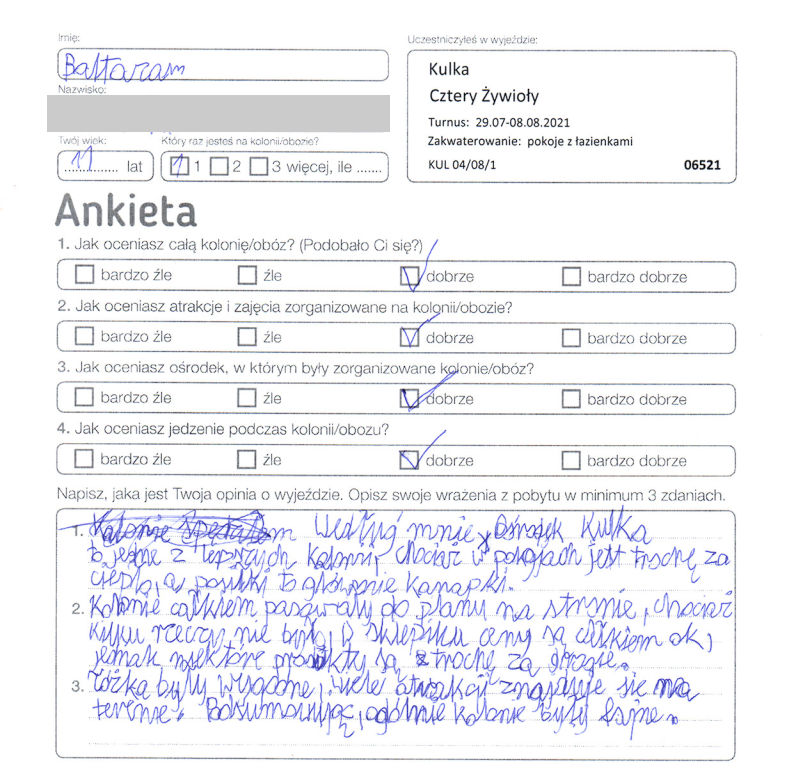 Imię:
Uczestniczyłeś w wyjeździe:
Baltazam
Nazwisko:
Kulka
Cztery Żywioły
Turnus: 29.07-08.08.2021
Zakwaterowanie: pokoje z łazienkami
KUL 04/08/1 06521
Twój wiek: Który raz jesteś na kolonii/obozie?
11 lat 1 2 3 więcej, ile .......
Ankieta
1. Jak oceniasz całą kolonię/obóz? (Podobało Ci się?)
bardzo źle źle dobrze bardzo dobrze
2. Jak oceniasz atrakcje i zajęcia zorganizowane na kolonii/obozie?
bardzo źle źle dobrze bardzo dobrze
3. Jak oceniasz ośrodek, w którym były zorganizowane kolonie/obóz?
bardzo źle źle dobrze bardzo dobrze
4. Jak oceniasz jedzenie podczas kolonii/obozu?
bardzo źle źle dobrze bardzo dobrze
Napisz, jaka jest Twoja opinia o wyjeździe. Opisz swoje wrażenia z pobytu w minimum 3 zdaniach.
1. Kolonie Według mnie Ośrodek Kulka
to jedne z lepszych kolonii, chociaż w pokojach jest trochę za
ciepło, a posiłki to głównie kanapki.
2. Kolonie całkiem pasowały do planu na stronie, chociaż
kilku rzeczy nie było, w sklepiku ceny są całkiem ok,
jednak niektóre produkty są trochę za drogie.
3. Łóżka były wygodne, wiele atrakcji znajduje się na
terenie. Podsumowując, ogólnie kolonie były fajne.